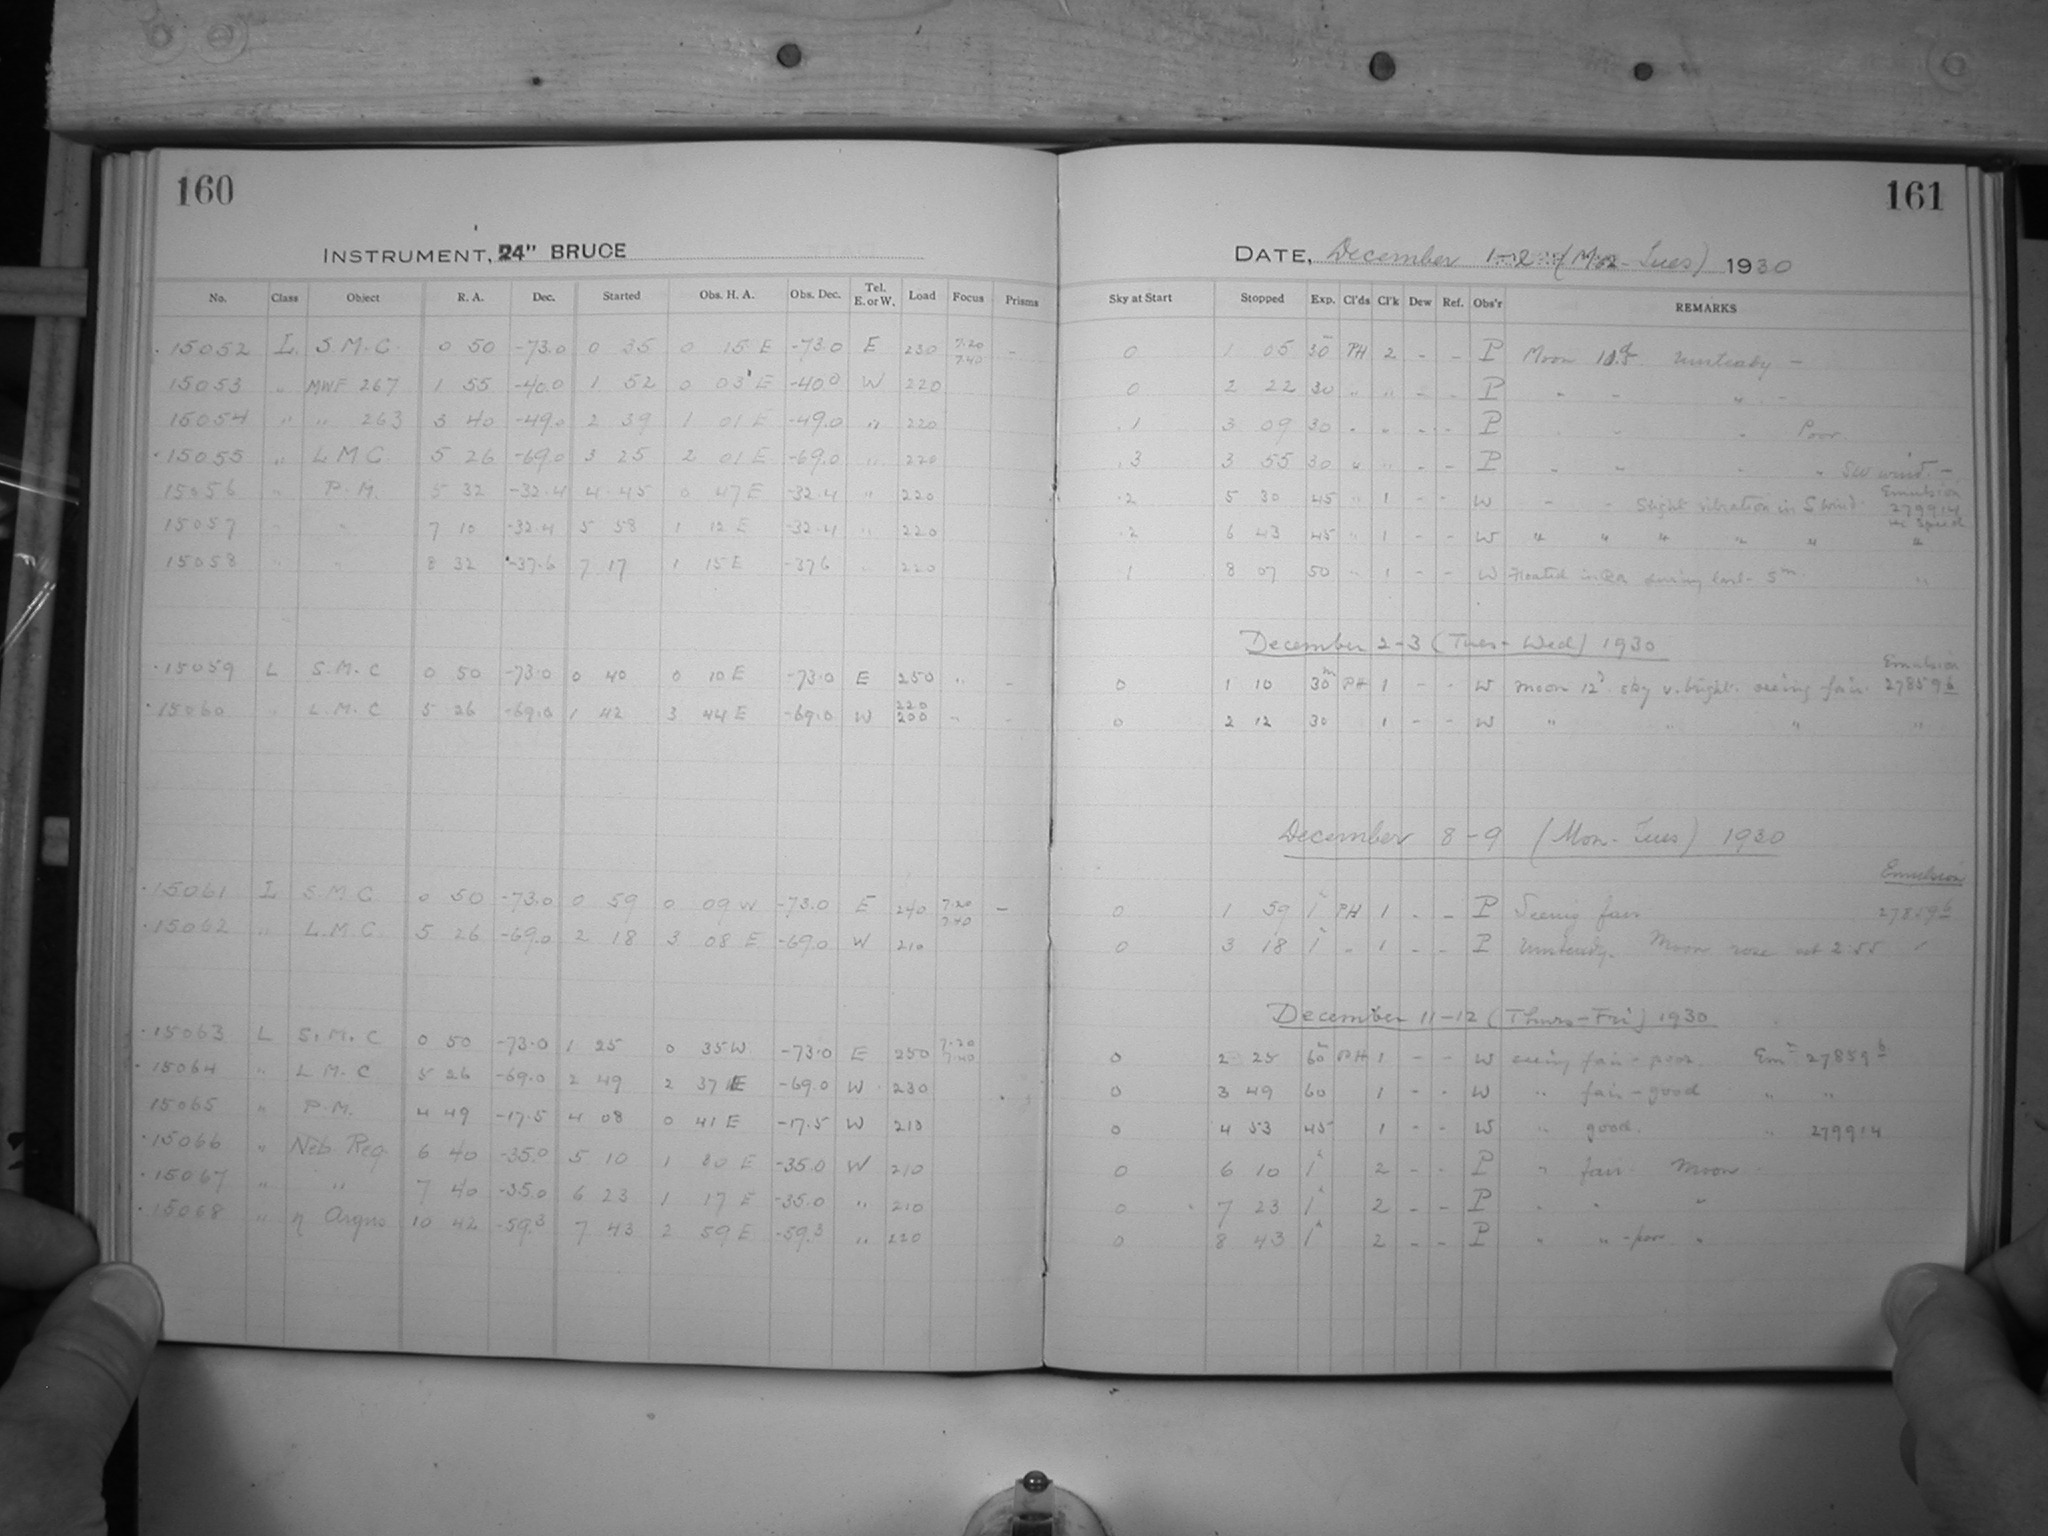 160
INSTRUMENT, 24" BRUCE
No. Class Object R. A. Dec. Started Obs. H. A. Obs. Dec. Tel. E. or W. Load Focus Prisms
15052 L S.M.C. 0 50 -73.0 0 35 0 15 E -73.0 E 230 7.20 7.40 -
15053 " MWF 267 1 55 -40.0 1 52 0 03 E -40.0 W 220
15054 " " 263 3 40 -49.0 2 39 1 01 E -49.0 " 220
15055 " L M C 5 26 -69.0 3 25 2 01 E -69.0 " 220
15056 " P.M. 5 32 -32.4 4 45 0 47 E -32.4 " 220
15057 " " 7 10 -32.4 5 58 1 12 E -32.4 " 220
15058 " " 8 32 -37.6 7 17 1 15 E -37.6 " 220
15059 L S.M.C 0 50 -73.0 0 40 0 10 E -73.0 E 250 " -
15060 " L.M.C 5 26 -69.0 1 42 3 44 E -69.0 W 220 200 " -
15061 L S.M.C 0 50 -73.0 0 59 0 09 W -73.0 E 240 7.20 7.40 -
15062 " L.M.C. 5 26 -69.0 2 18 3 08 E -69.0 W 210
15063 L S.M.C 0 50 -73.0 1 25 0 35 W -73.0 E 250 7.20 7.40
15064 " L M.C 5 26 -69.0 2 49 2 37 E -69.0 W 230
15065 " P.M. 4 49 -17.5 4 08 0 41 E -17.5 W 210
15066 " Neb. Reg 6 40 -35.0 5 10 1 30 E -35.0 W 210
15067 " " 7 40 -35.0 6 23 1 17 E -35.0 " 210
15068 " η Argus 10 42 -59.3 7 43 2 59 E -59.3 " 220
161
DATE, December 1-2 (Mon-Tues) 1930
Sky at Start Stopped Exp. Cl'ds Cl'k Dew Ref. Obs'r REMARKS
0 1 05 30 PH 2 - - P Moon Unsteady -
0 2 22 30 " " - - P " " " -
.1 3 09 30 " " - - P " " " Poor.
.3 3 55 30 " " - - P " " " " SW wind. -
Emulsion
.2 5 30 45 " 1 - - W - - Slight vibration in S wind 279914
Speed
.2 6 43 45 " 1 - - W " " " " " "
.1 8 07 50 " 1 - - W Floated in RA during last 5m. "
December 2-3 (Tues-Wed) 1930
Emulsion
0 1 10 30m PH 1 - - W Moon 12d. sky v. bright. seeing fair. 278596
0 2 12 30 1 - - W " " " "
December 8-9 (Mon-Tues) 1930
Emulsion
0 1 59 1h PH 1 - - P Seeing fair 278596
0 3 18 1h - 1 - - P Unsteady. Moon rose at 2:55 "
December 11-12 (Thurs-Fri) 1930
0 2 25 60m PH 1 - - W seeing fair - poor. Emn 278596
0 3 49 60 1 - - W " fair - good " "
0 4 53 45 1 - - W " good. " 279914
0 6 10 1h 2 - - P " fair. Moon
0 7 23 1h 2 - - P " " "
0 8 43 1h 2 - - P " " - poor "